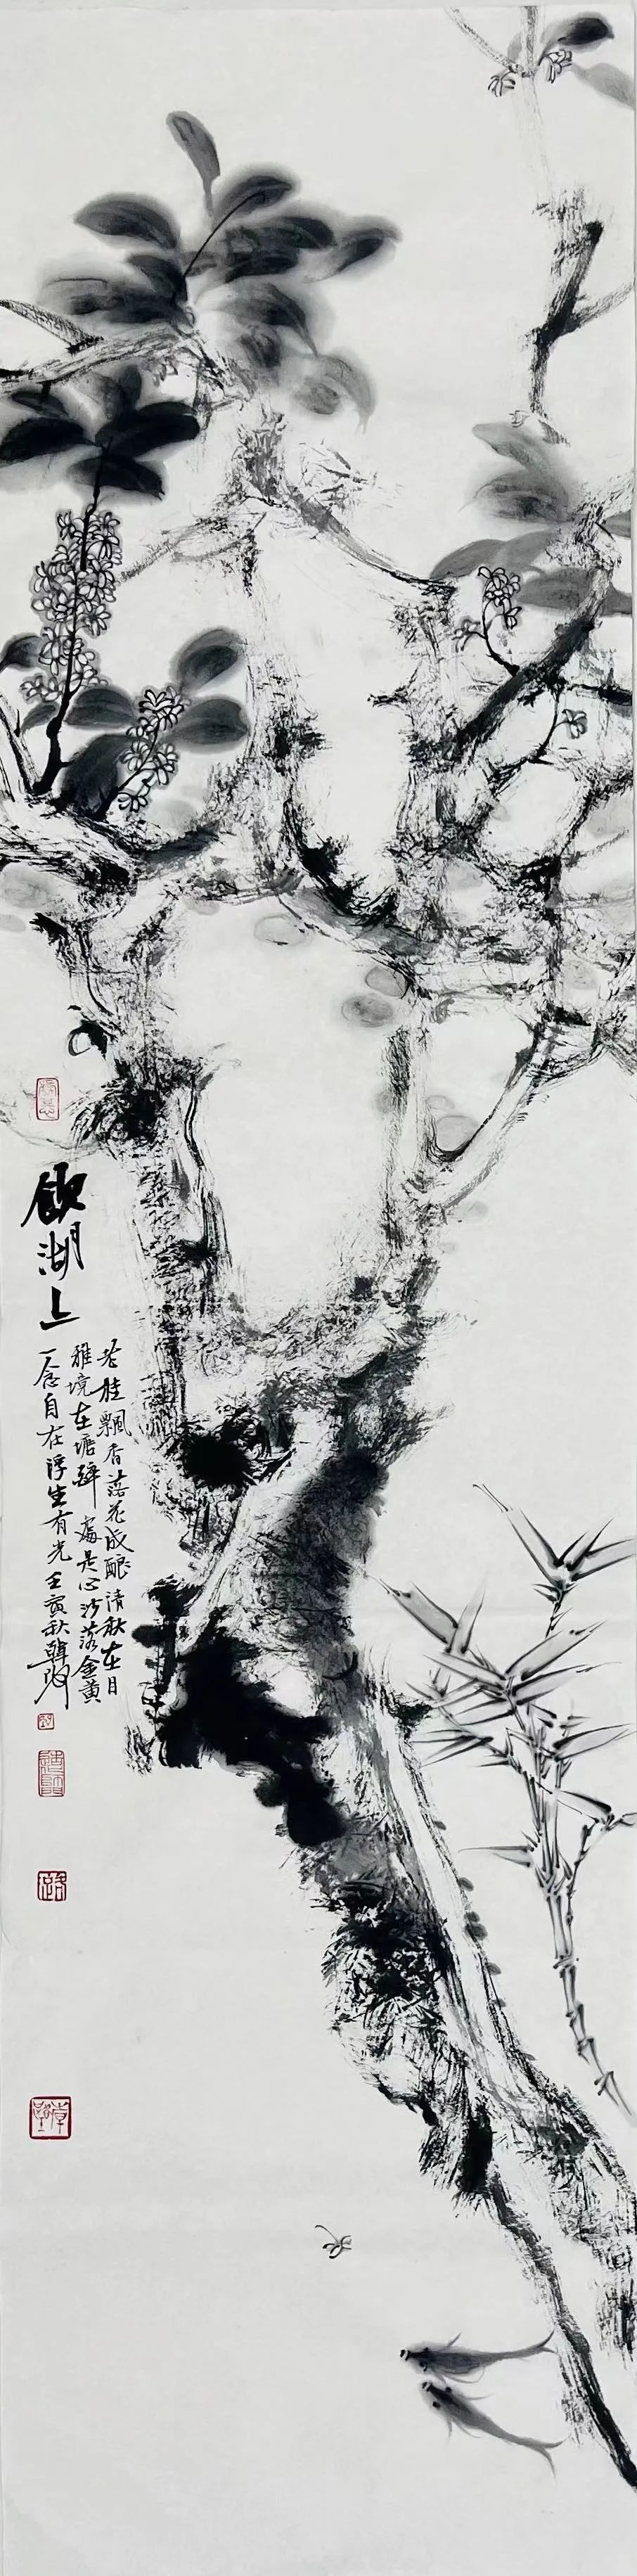 饮湖上
老桂飘香落花成酿清秋在目
雅境在塘静处是心沙落金黄
一念自在浮生有光壬寅秋韓